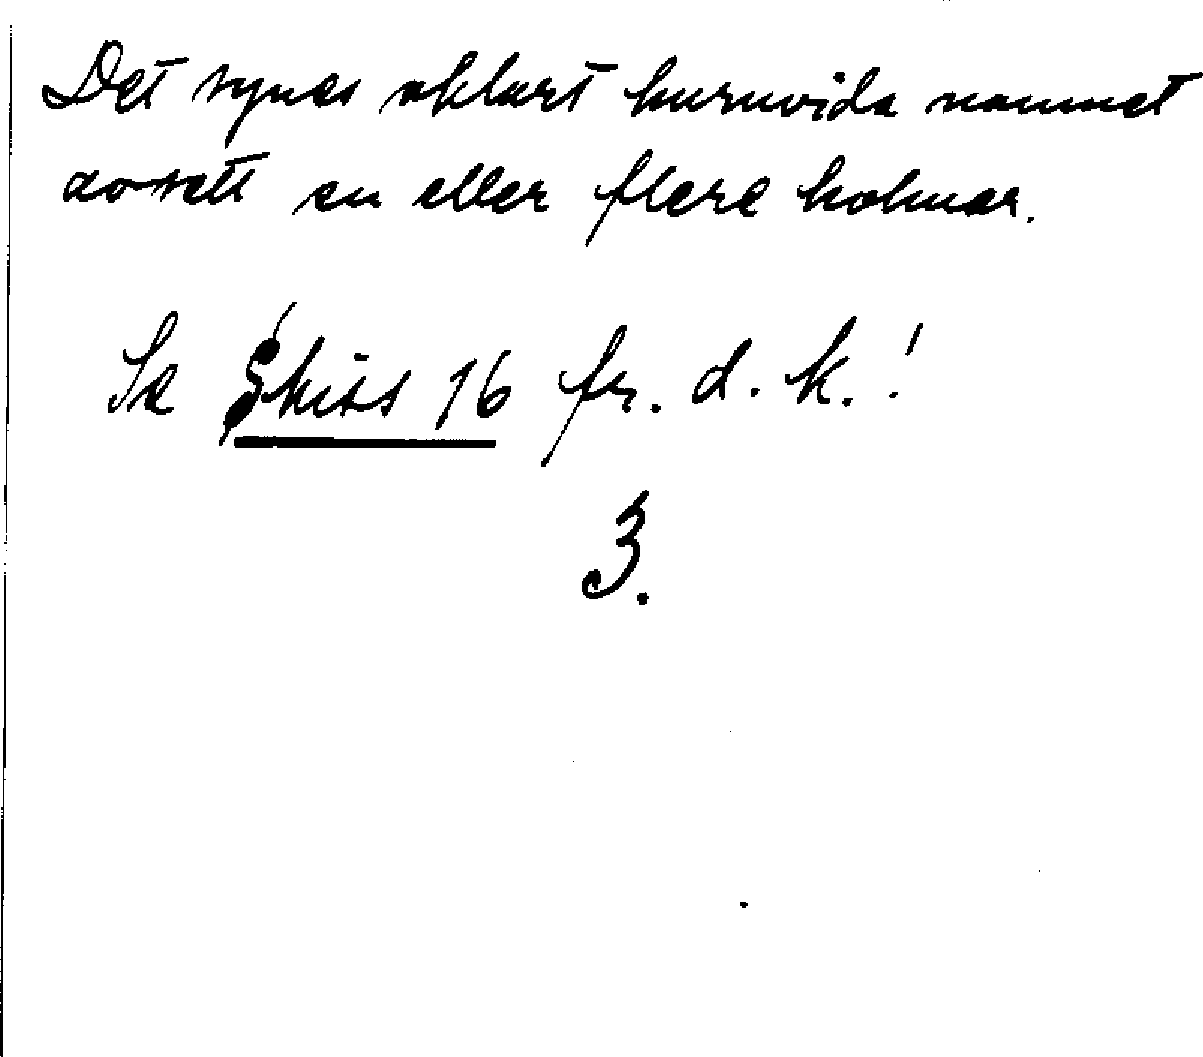 Det synes oklart huruvida namnet
avsett en eller flere holmar.
Se Skiss 16 fr. d. k.!
3.